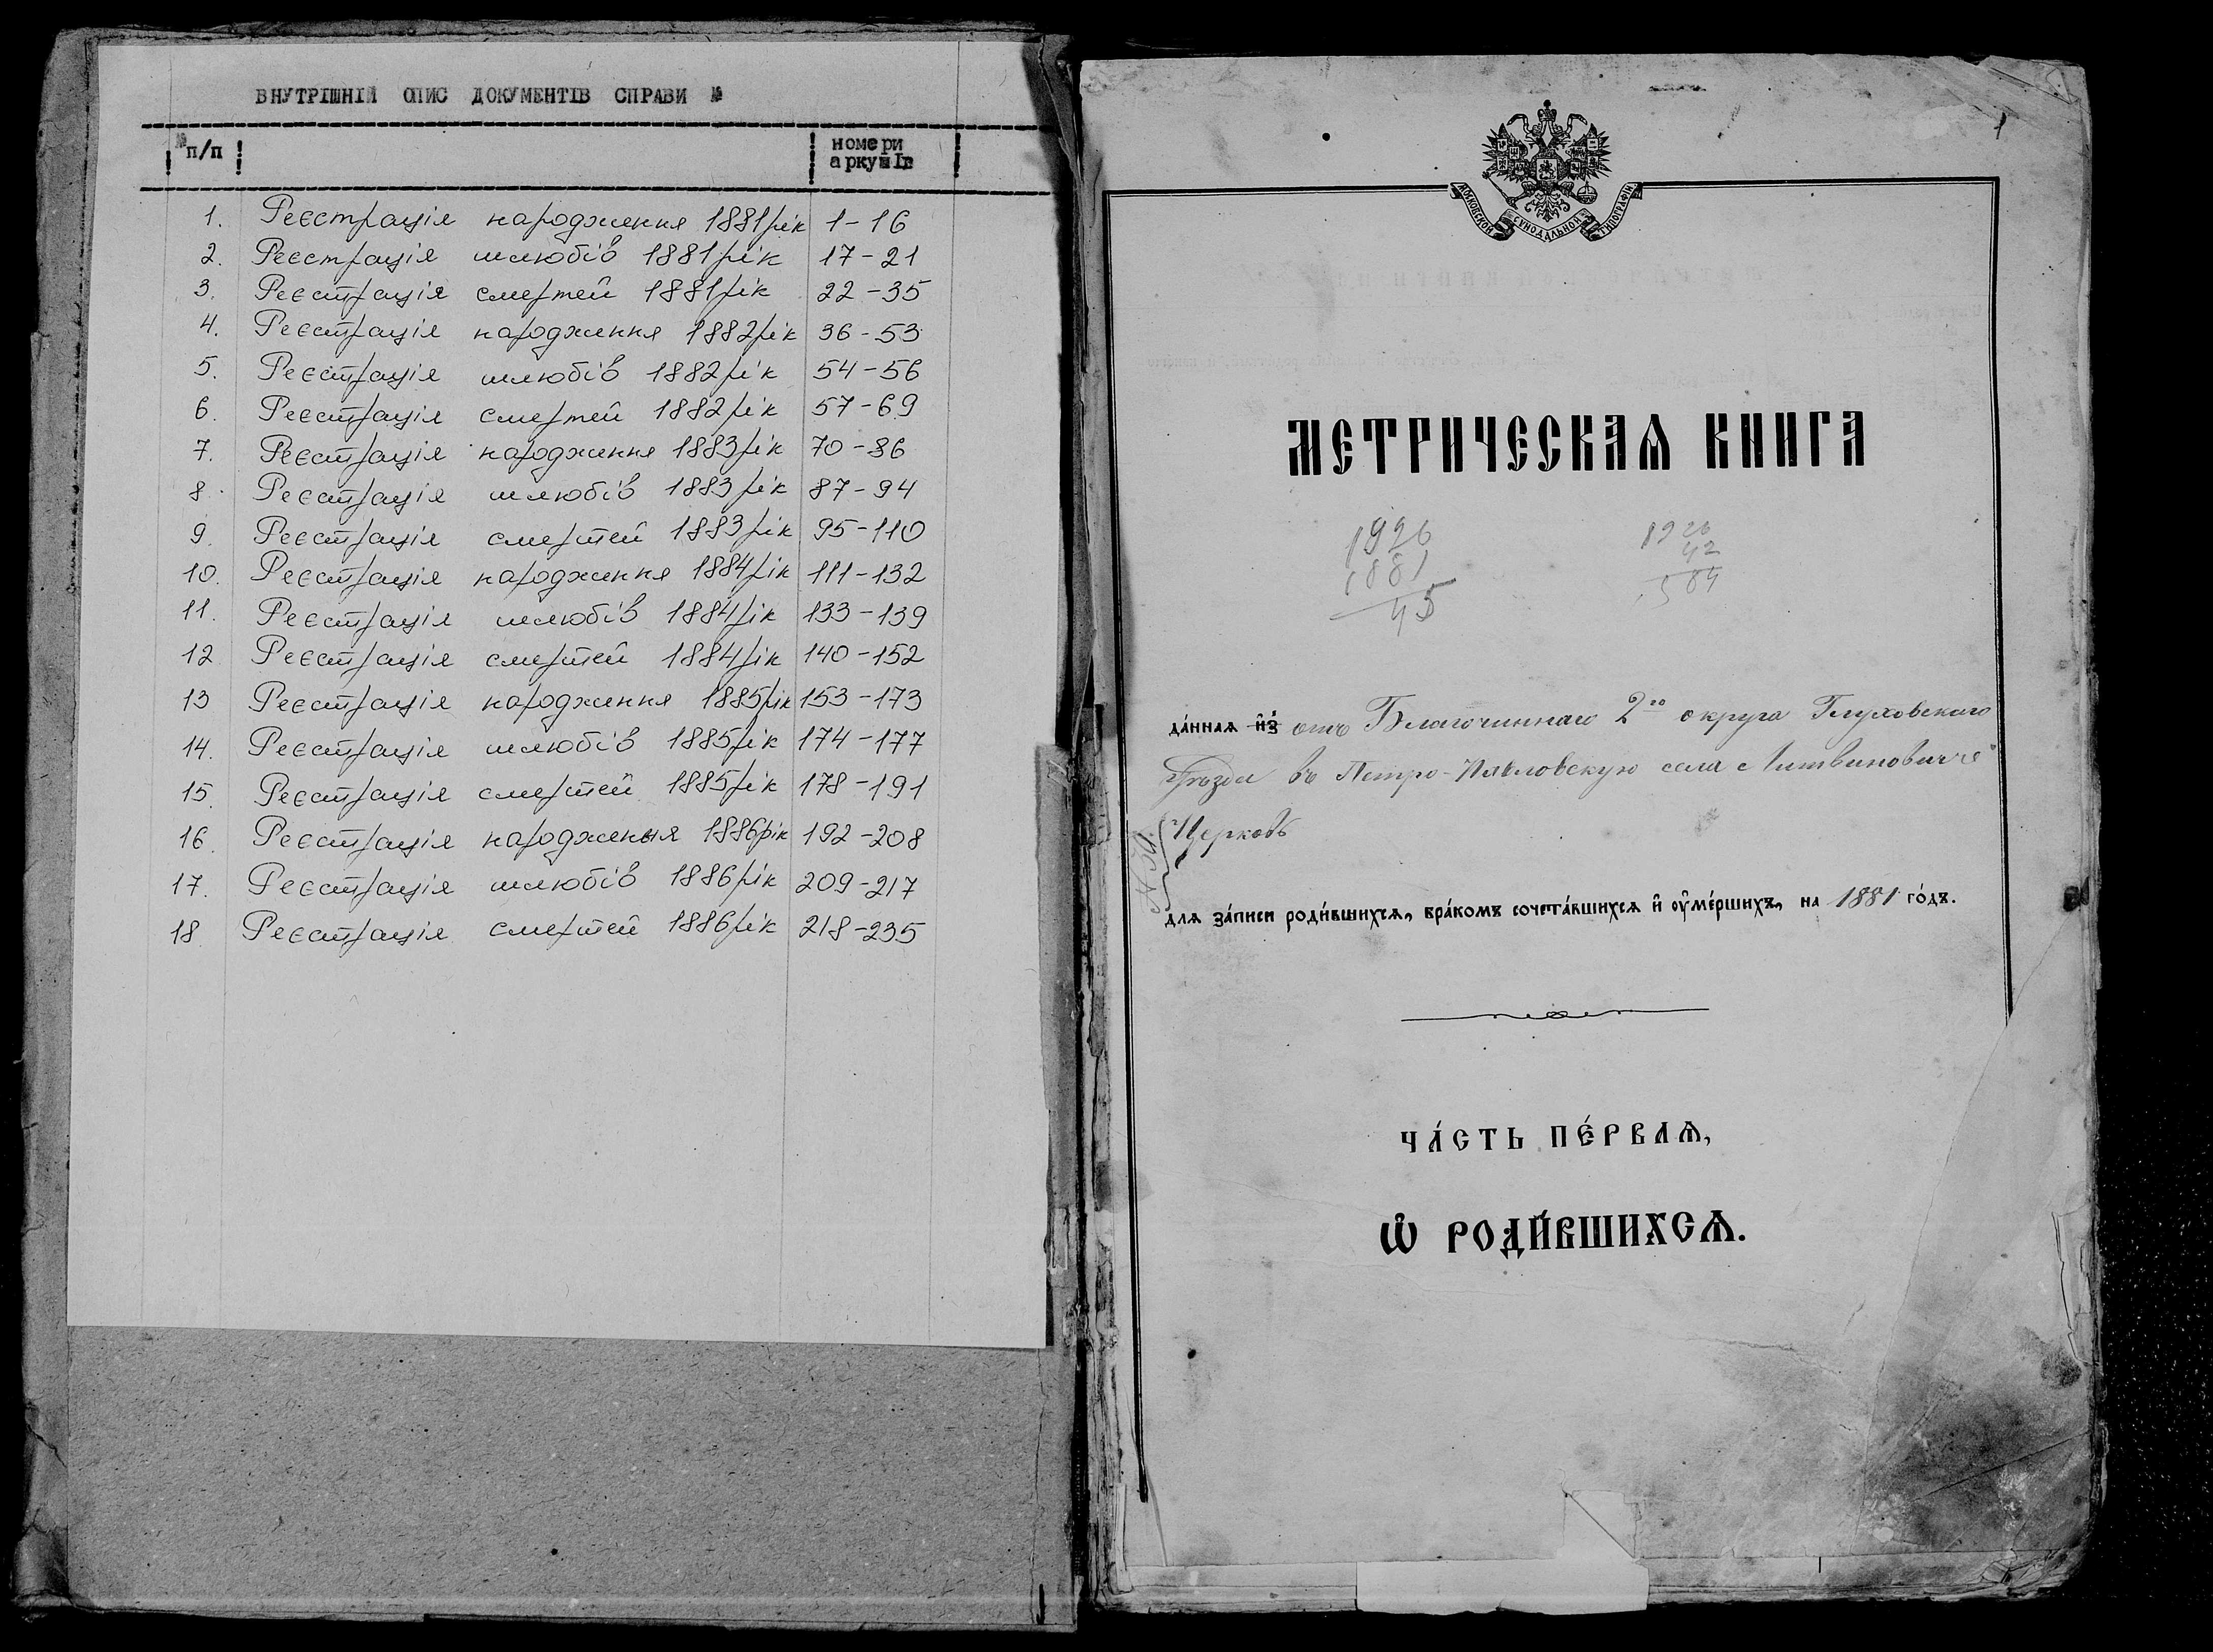 ВНУТРІШНІЙ ОПИС ДОКУМЕНТІВ СПРАВИ №
№ п/п
номери
аркушів
1. Реєстрація народження 1881 рік 1-16
2. Реєстрація шлюбів 1881 рік 17-21
3. Реєстрація смертей 1881 рік 22-35
4. Реєстрація народження 1882 рік 36-53
5. Реєстрація шлюбів 1882 рік 54-56
6. Реєстрація смертей 1882 рік 57-69
7. Реєстрація народження 1883 рік 70-86
8. Реєстрація шлюбів 1883 рік 87-94
9. Реєстрація смертей 1883 рік 95-110
10. Реєстрація народження 1884 рік 111-132
11. Реєстрація шлюбів 1884 рік 133-139
12 Реєстрація смертей 1884 рік 140-152
13 Реєстрація народження 1885 рік 153-173
14. Реєстрація шлюбів 1885 рік 174-177
15. Реєстрація смертей 1885 рік 178-191
16. Реєстрація народження 1886 рік 192-208
17. Реєстрація шлюбів 1886 рік 209-217
18 Реєстрація смертей 1886 рік 218-235
1
МОСКОВСКОЙ СУНОДАЛЬНОЙ ТИПОГРАФІИ
МЕТРИЧЕСКАѦ КНИГА
1926 1926
1881 42
45
да́ннаѧ и҆з̾ отъ Благочиннаго 2го округа Глуховскаго
Уѣзда въ Петро-Павловскую села Литвиновичъ
Церковь
длѧ за́писи роди́вшихсѧ, бра́комъ сочета́вшихсѧ и҆ ᲂу҆ме́ршихъ, на 1881 го́дъ.
ЧА́СТЬ ПЕ́РВАѦ,
Ѽ РОДИ́ВШИХСѦ.